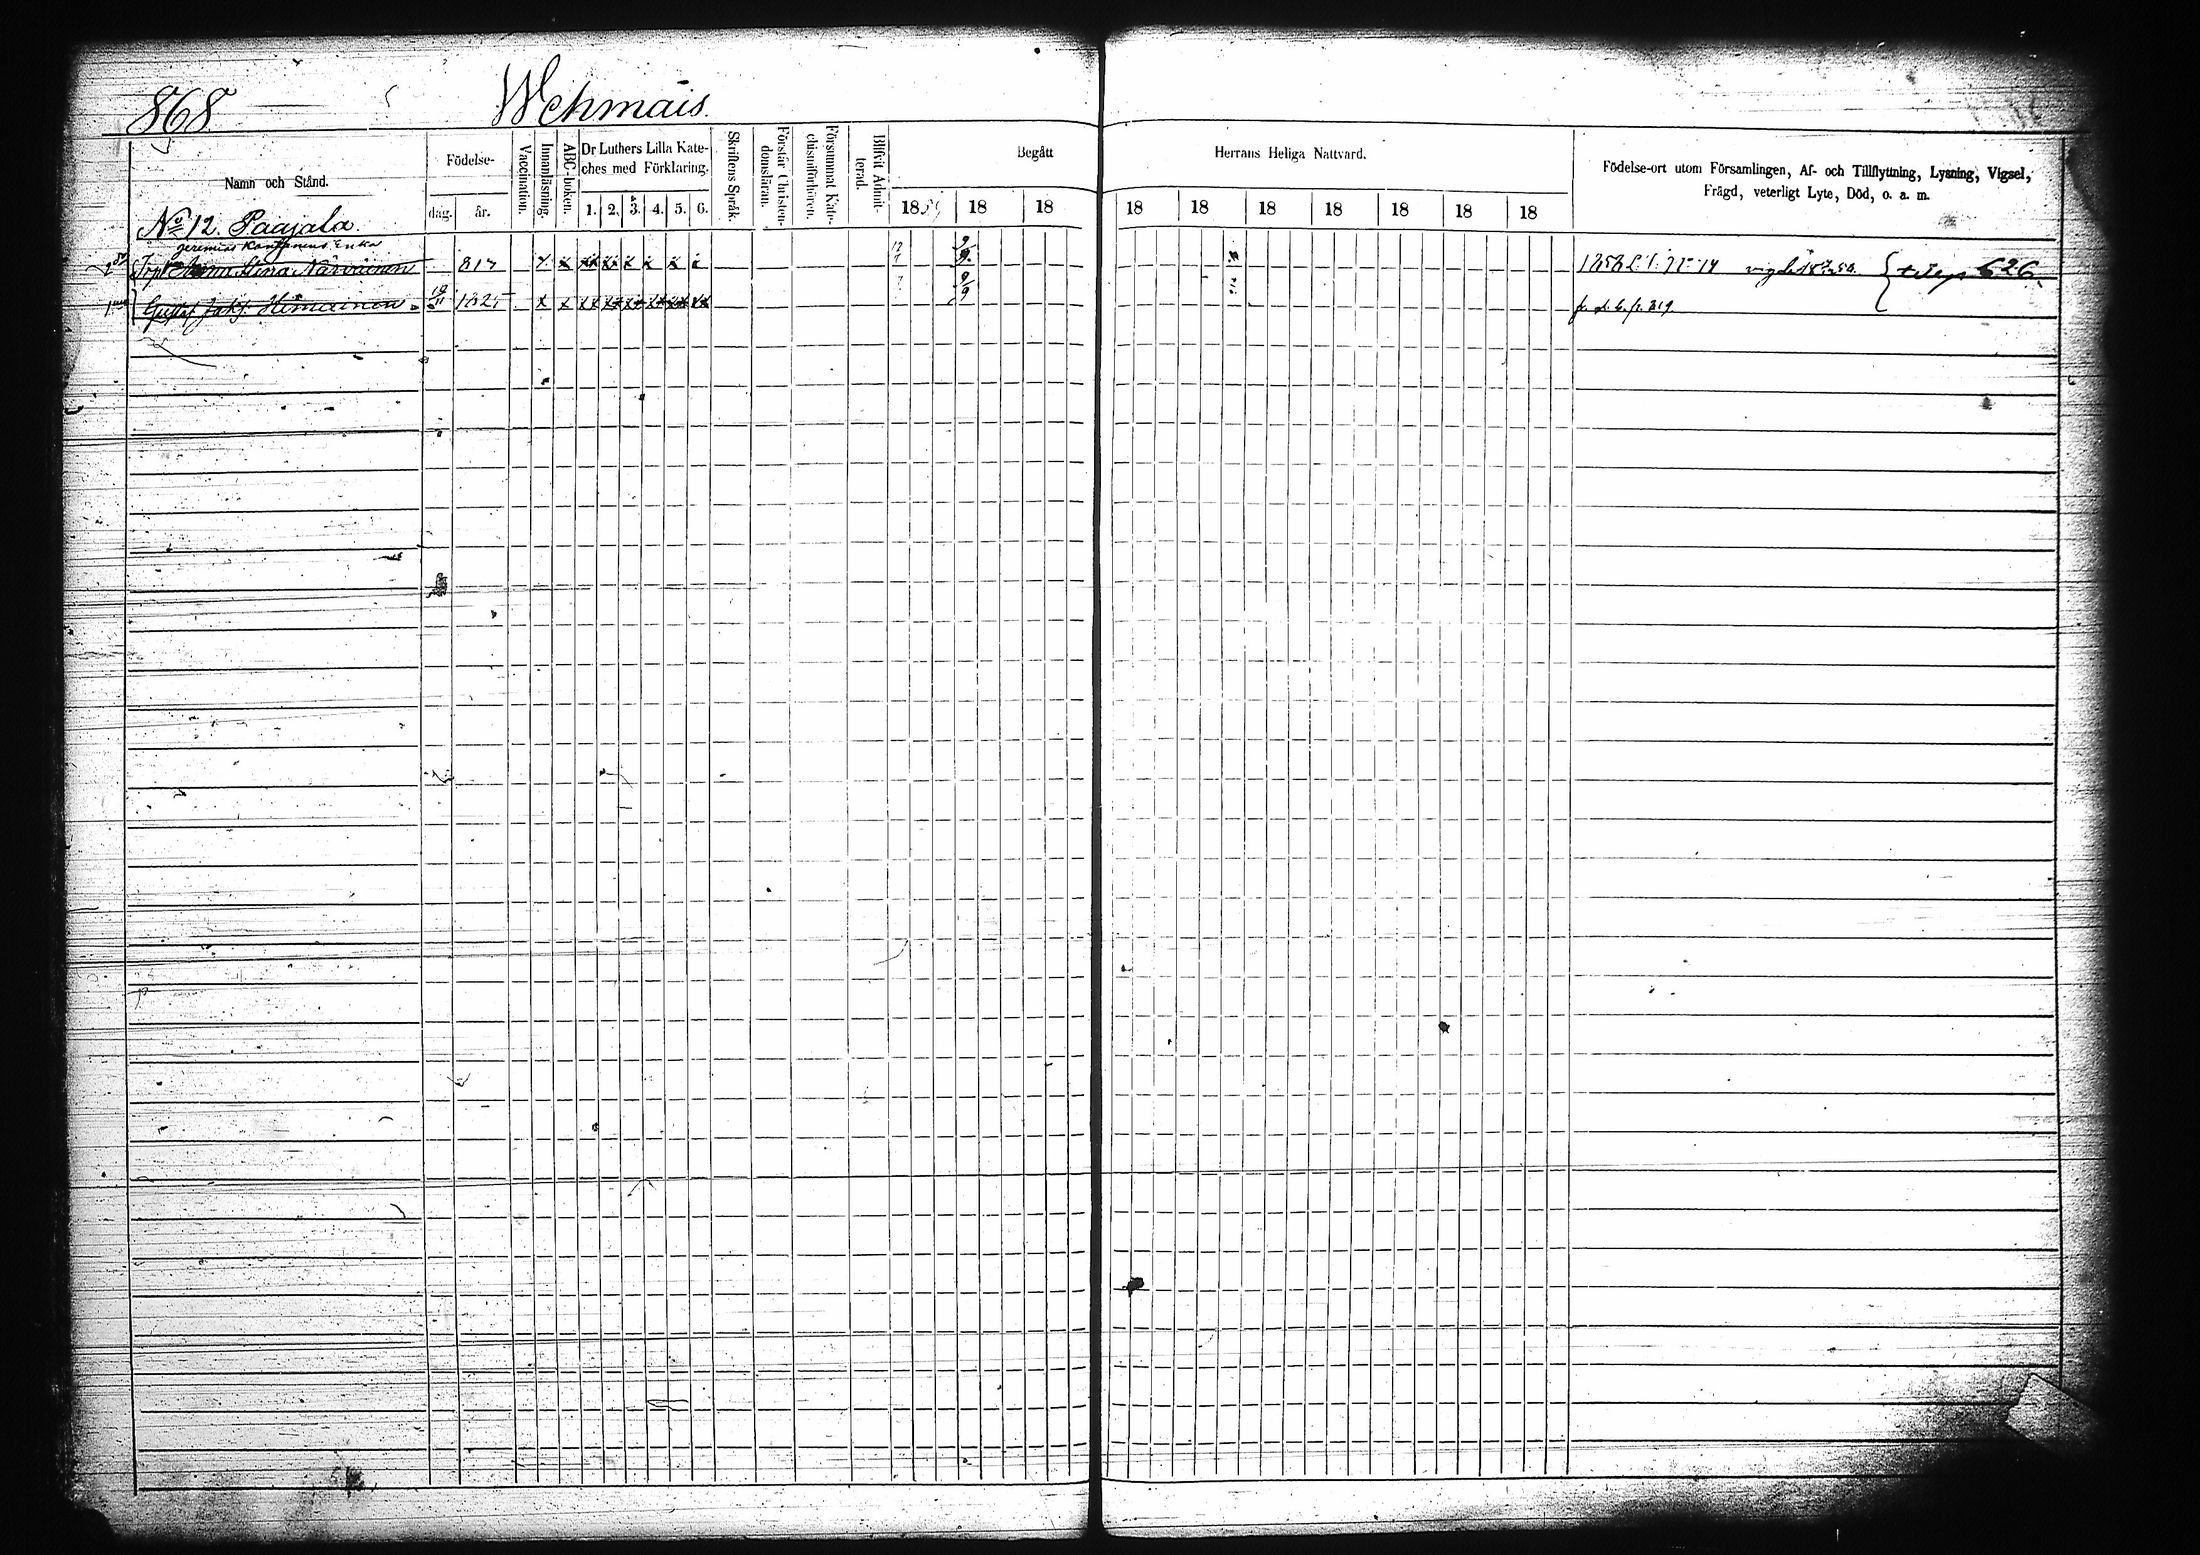 868
Wehmais.
Namn och Stånd.
Födelse-
dag.
år.
Vaccination.
Innanläsning.
ABC-boken.
Dr Luthers Lilla Kate-
ches med Förklaring.
1. 2. 3. 4. 5. 6.
Skriftens Språk.
Förstår Christen-
domsläran.
Försummat Kate-
chismiförhören.
Blifvit Admit-
terad.
Begått
Herrans Heliga Nattvard.
1859 18 18 18 18 18 18 18 18 18
Födelse-ort utom Församlingen, Af- och Tillflyttning, Lysning, Vigsel,
Frägd, veterligt Lyte, Död, o. a. m.
No 12. Paajala.
Jeremias Enka
Anna Stina Närväinen 817 626
Gustaf Jak. 19/11 1825 319.